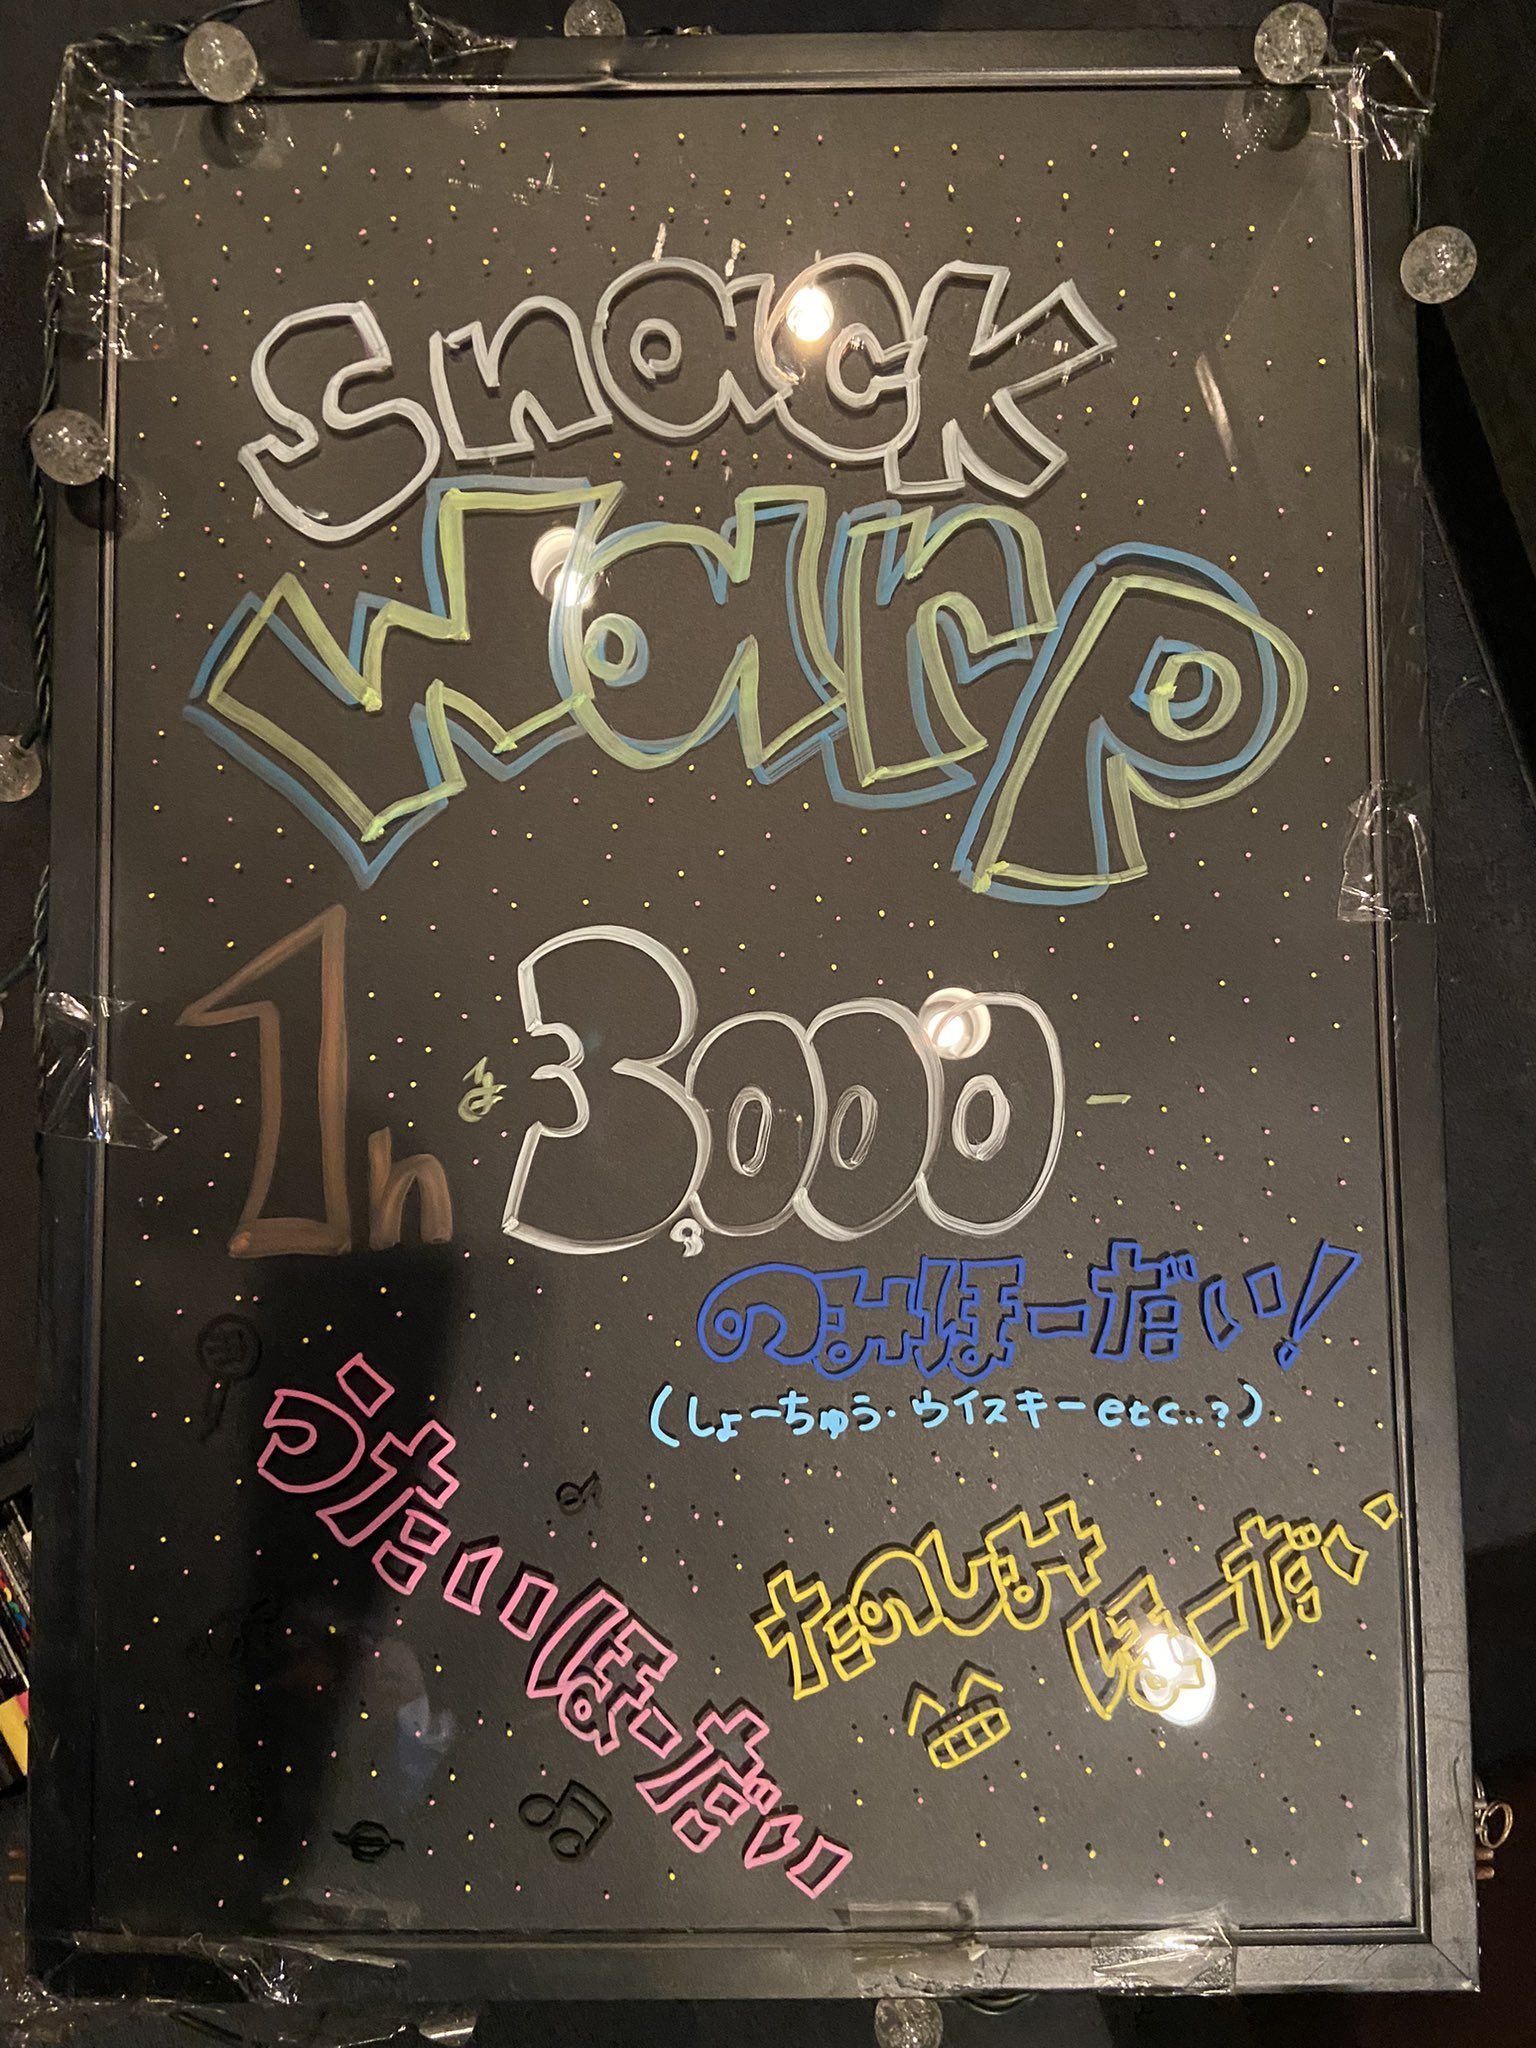 Snack
Warp
1h
¥3,000-
のみほーだい!
(しょーちゅう・ウイスキーetc..?)
うたいほーだい
たのしみ
ほーだい